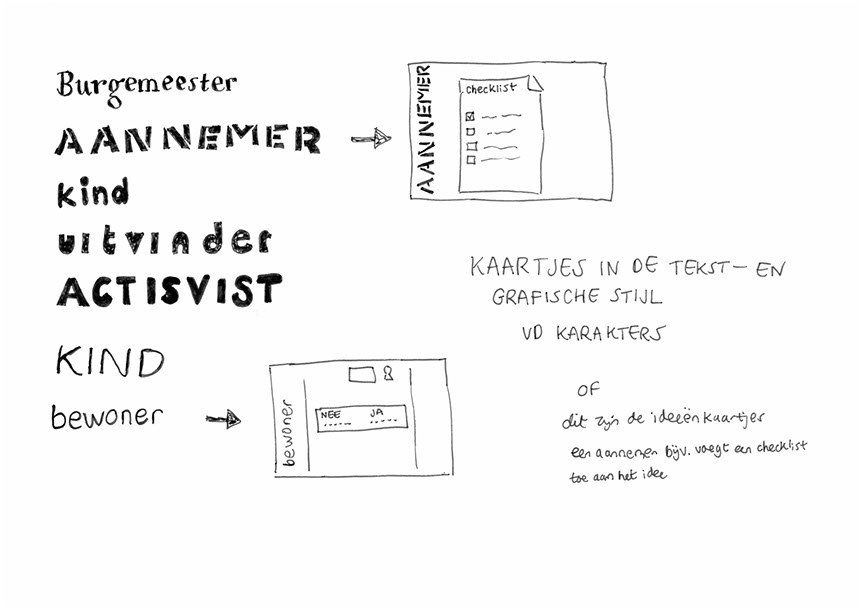 Burgemeester
AANNEMER
kind
uitvinder
ACTISVIST
KIND
bewoner
AANNEMER
checklist
bewoner
NEE JA
KAARTJES IN DE TEKST- EN
GRAFISCHE STIJL
VD KARAKTERS
OF
dit zijn de ideeën kaartjes
een aannemer bijv. voegt een checklist
toe aan het idee